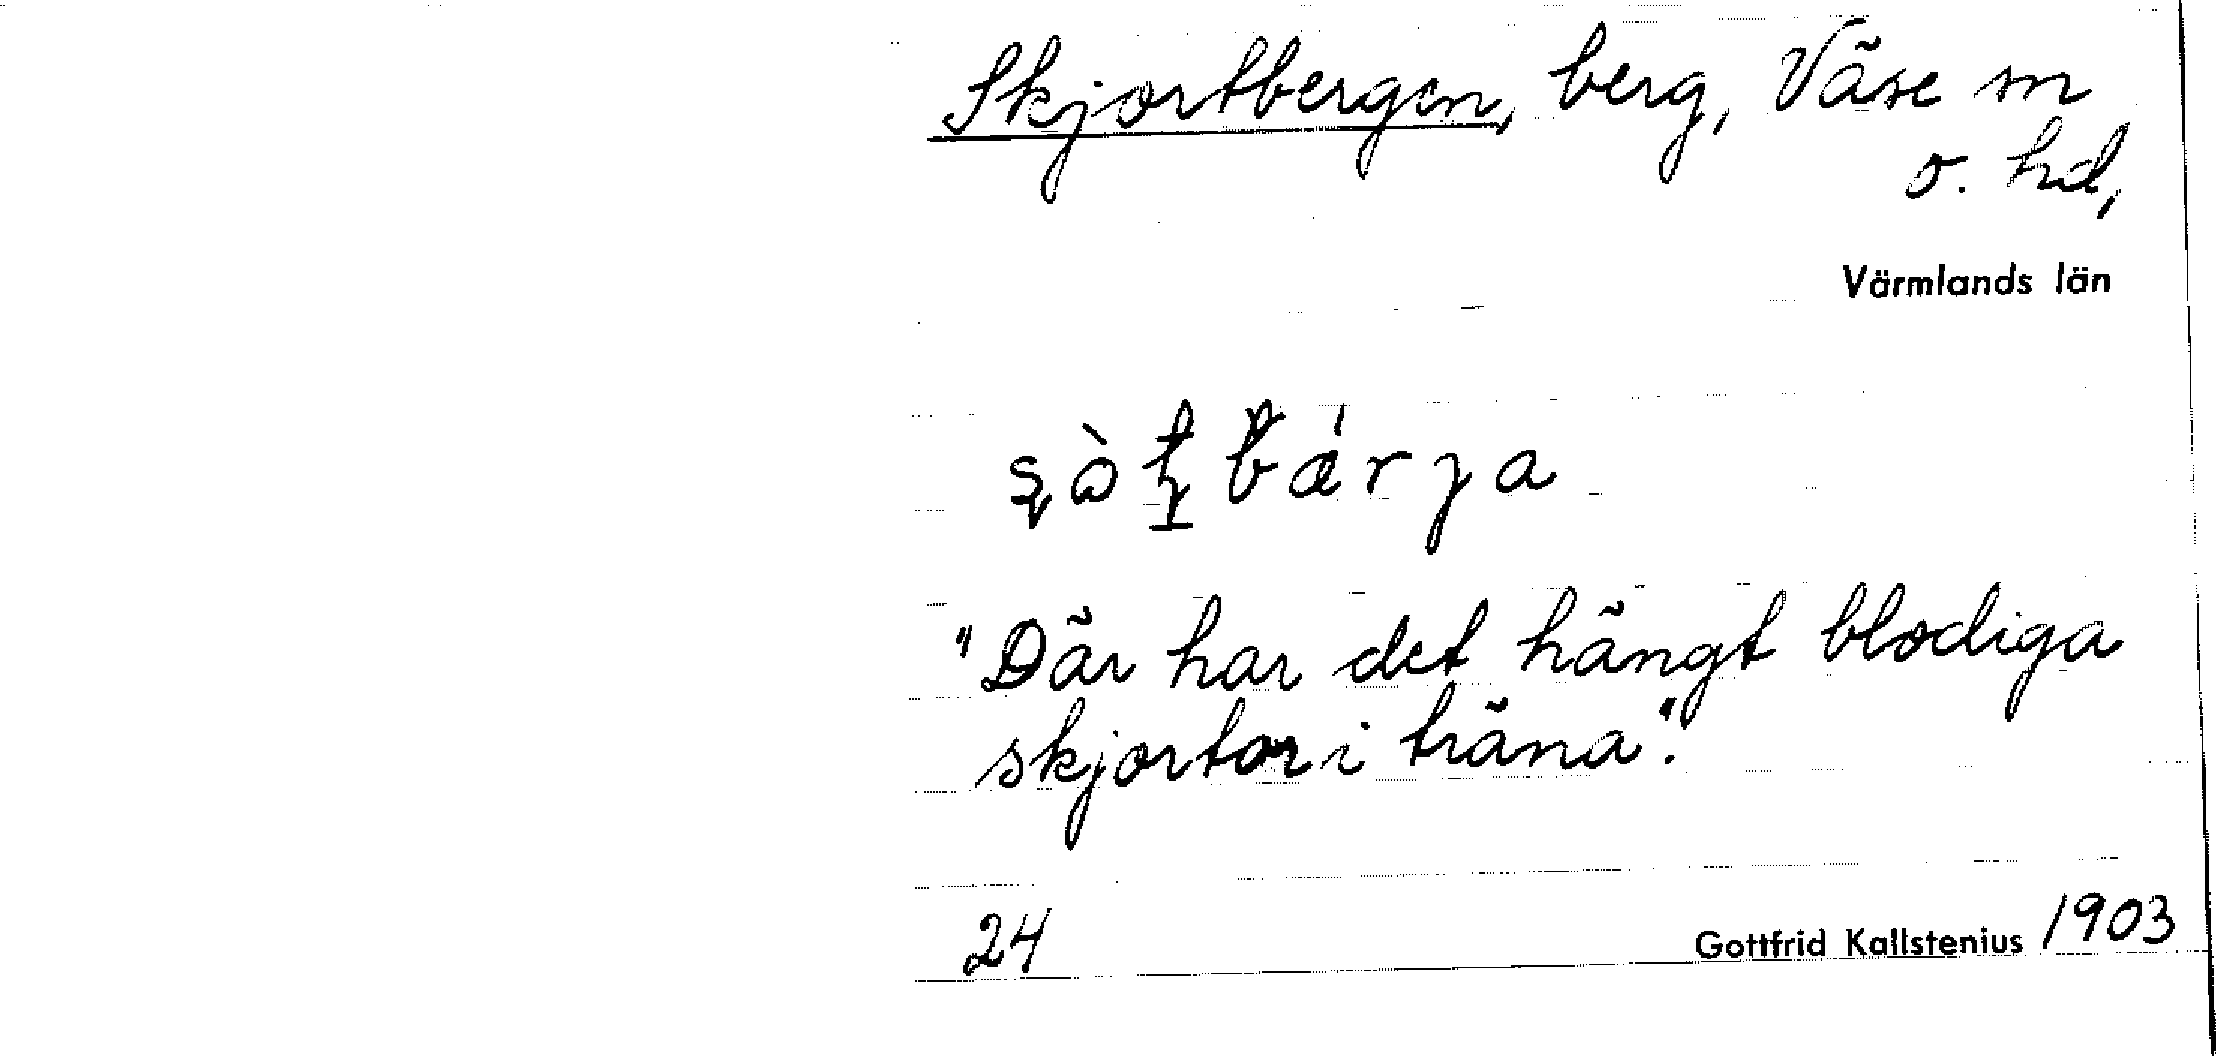 Skjortbergen, berg, Väse sn
o. hd,
Värmlands län
"Där har det hängt blodiga
skjortor i träna".
24 Gottfrid Kallstenius 1903